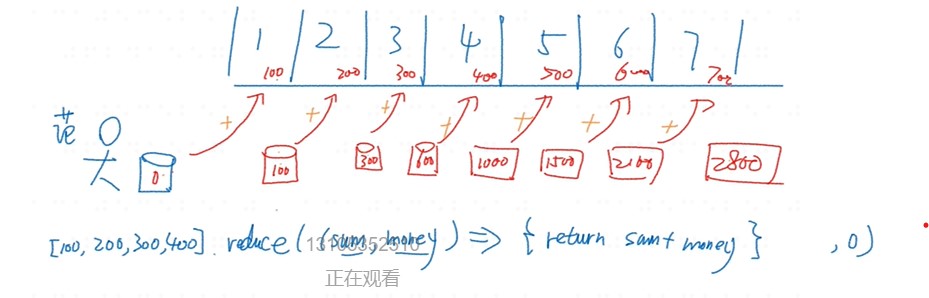 1 2 3 4 5 6 7
100 200 300 400 500 600 700
+ + + + + + +
0 100 300 600 1000 1500 2100 2800
[100, 200, 300, 400] reduce( (sum, money) => { return sum + money } , 0)
正在观看